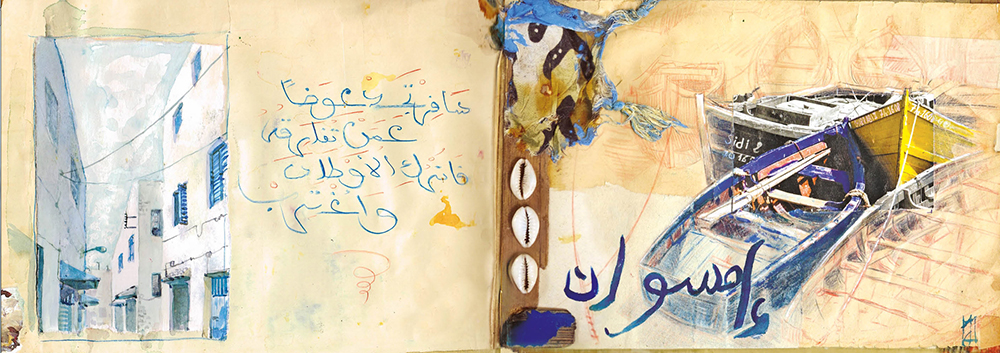 سافر تجد عوضاً
عمّن تفارقه
فاترك الأوطان
واغترب
إمسوان
Sidi